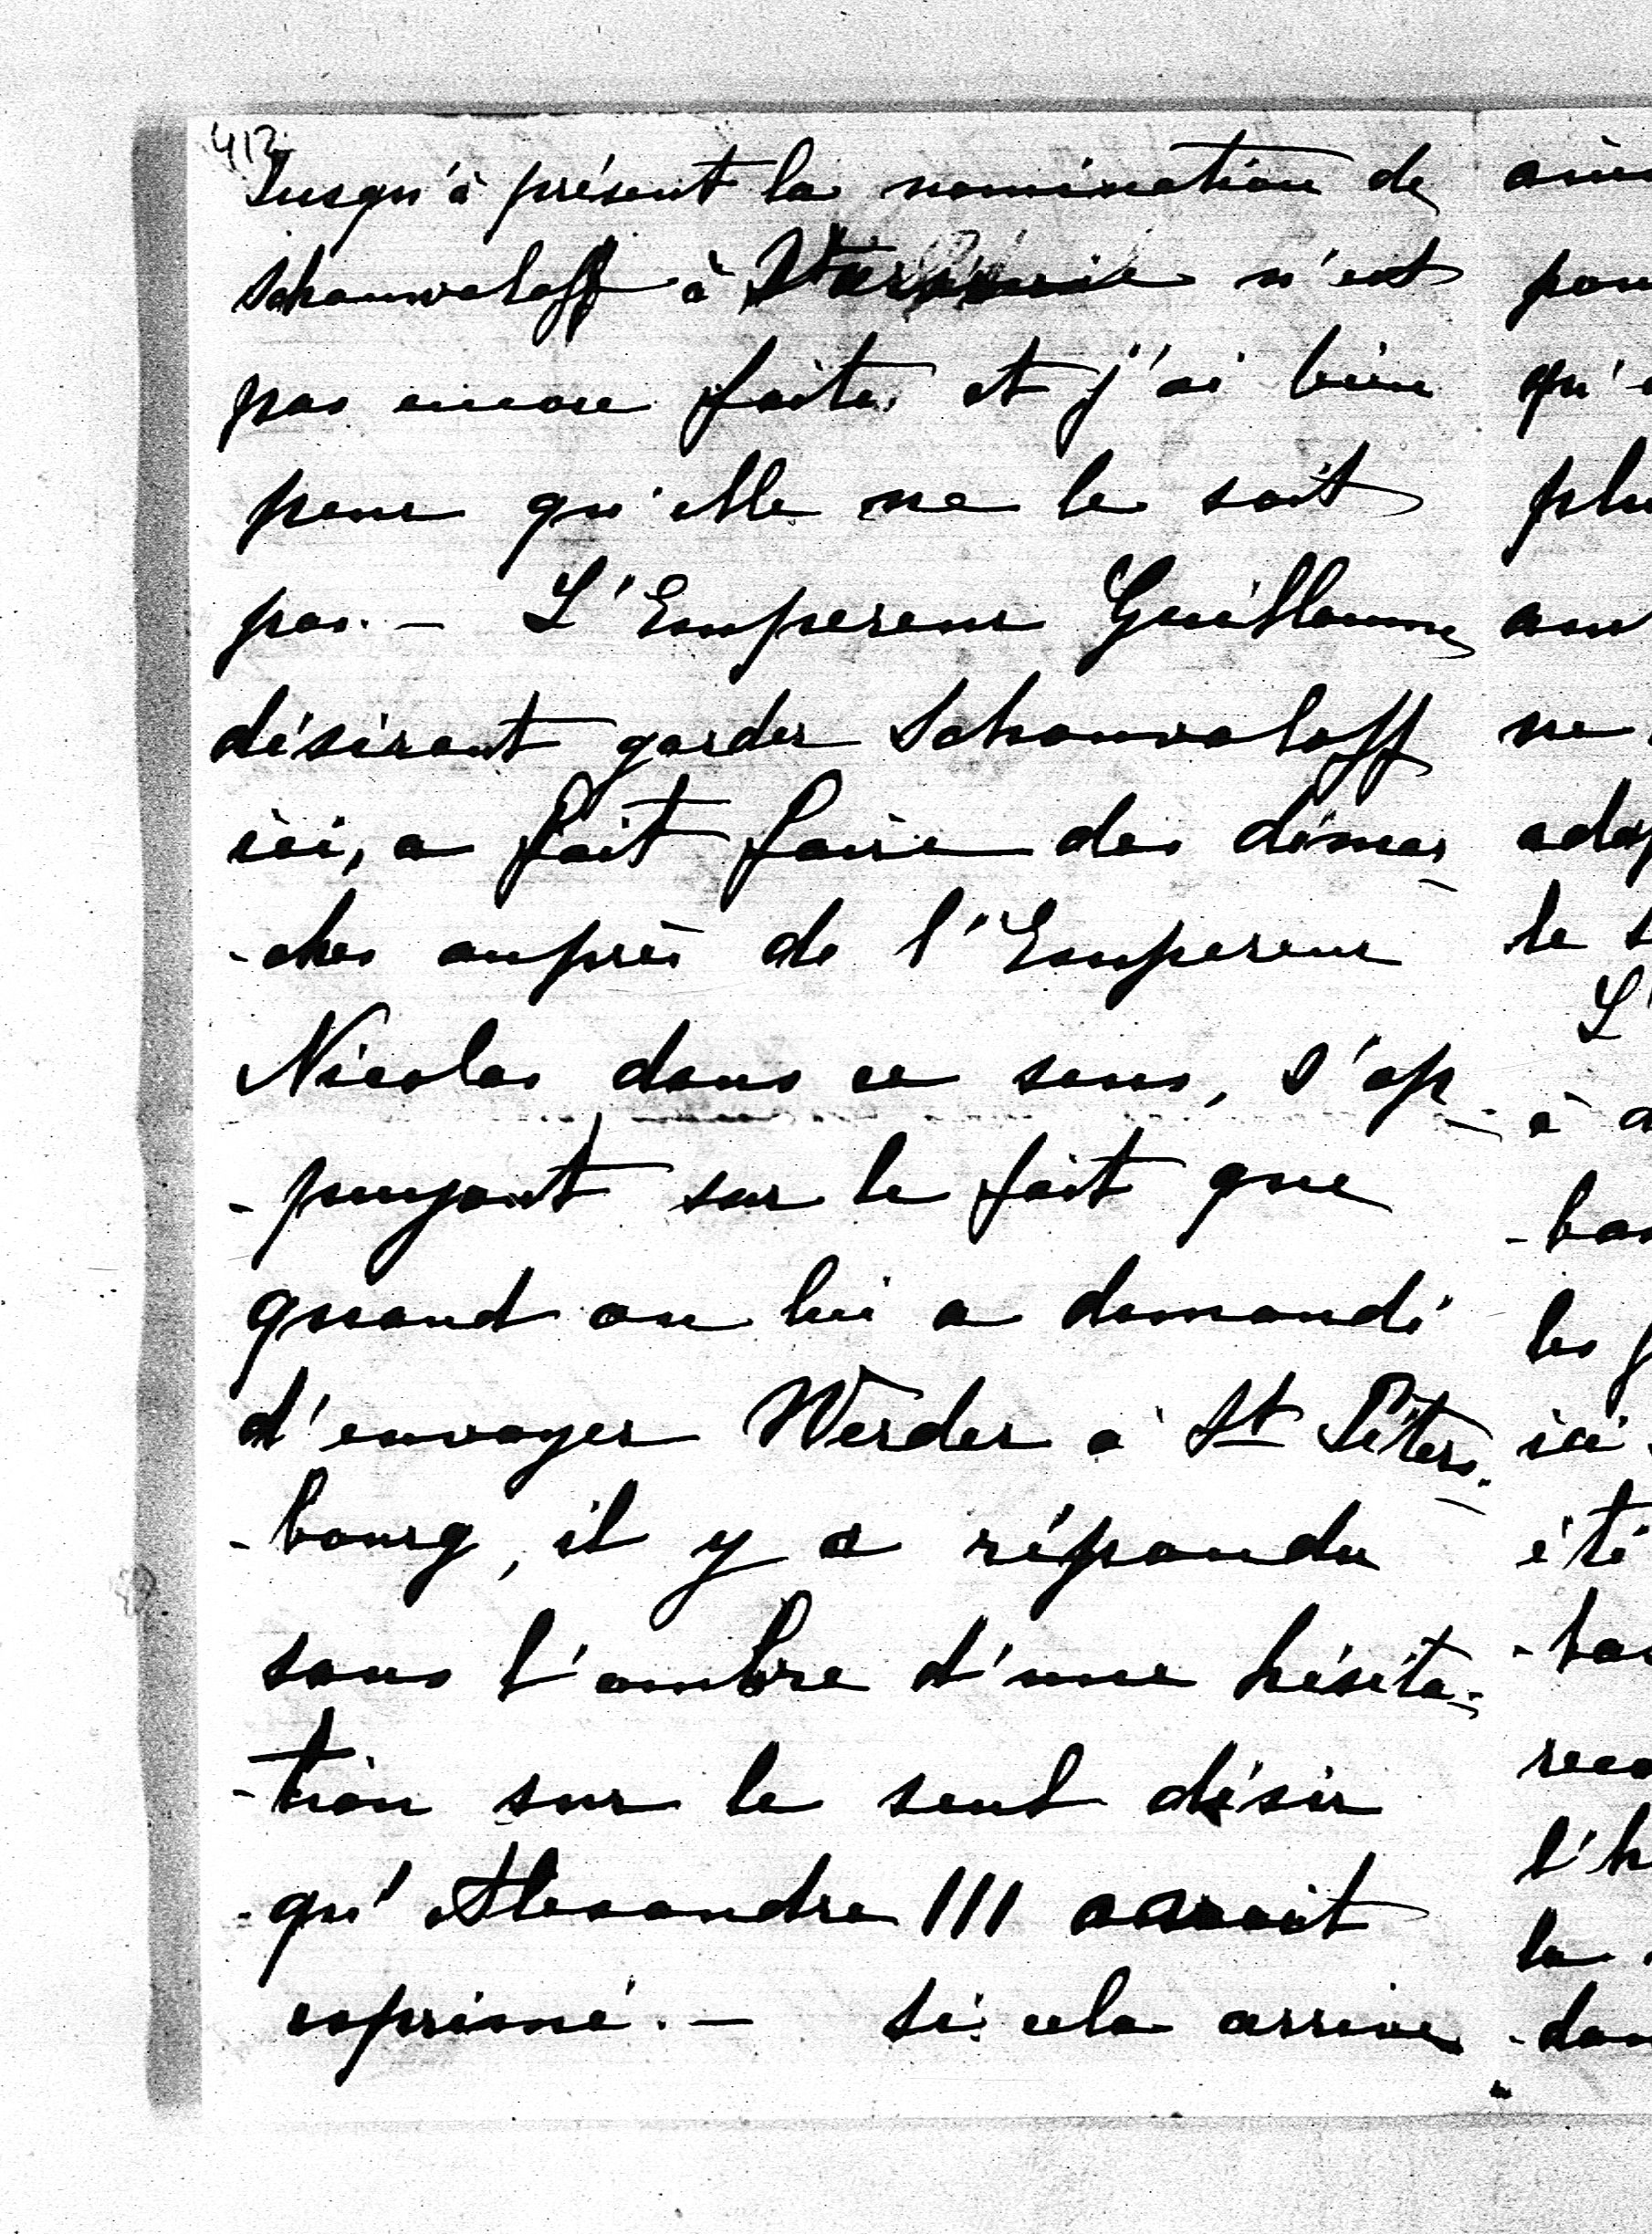 412
Jusqu'à présent la nomination de
Schouvaloff à Varsovie n'est
pas encore faite et j'ai bien
peur qu'elle ne le soit
pas. – L'Empereur Guillaume
désirant garder Schouvaloff
ici, a fait faire des démar-
-ches auprès de l'Empereur
Nicolas dans ce sens, s'ap-
-puyant sur le fait que
quand on lui a demandé
d'envoyer Werder à St Péters-
-bourg, il y a répondu
sans l'ombre d'une hésita-
-tion sur le seul désir
qu'Alexandre III aurait
exprimé. – Si cela arrive
pou
qu'
plu
ne
adop
le s
L'
à
-bas
les
ici
été
l'h
la